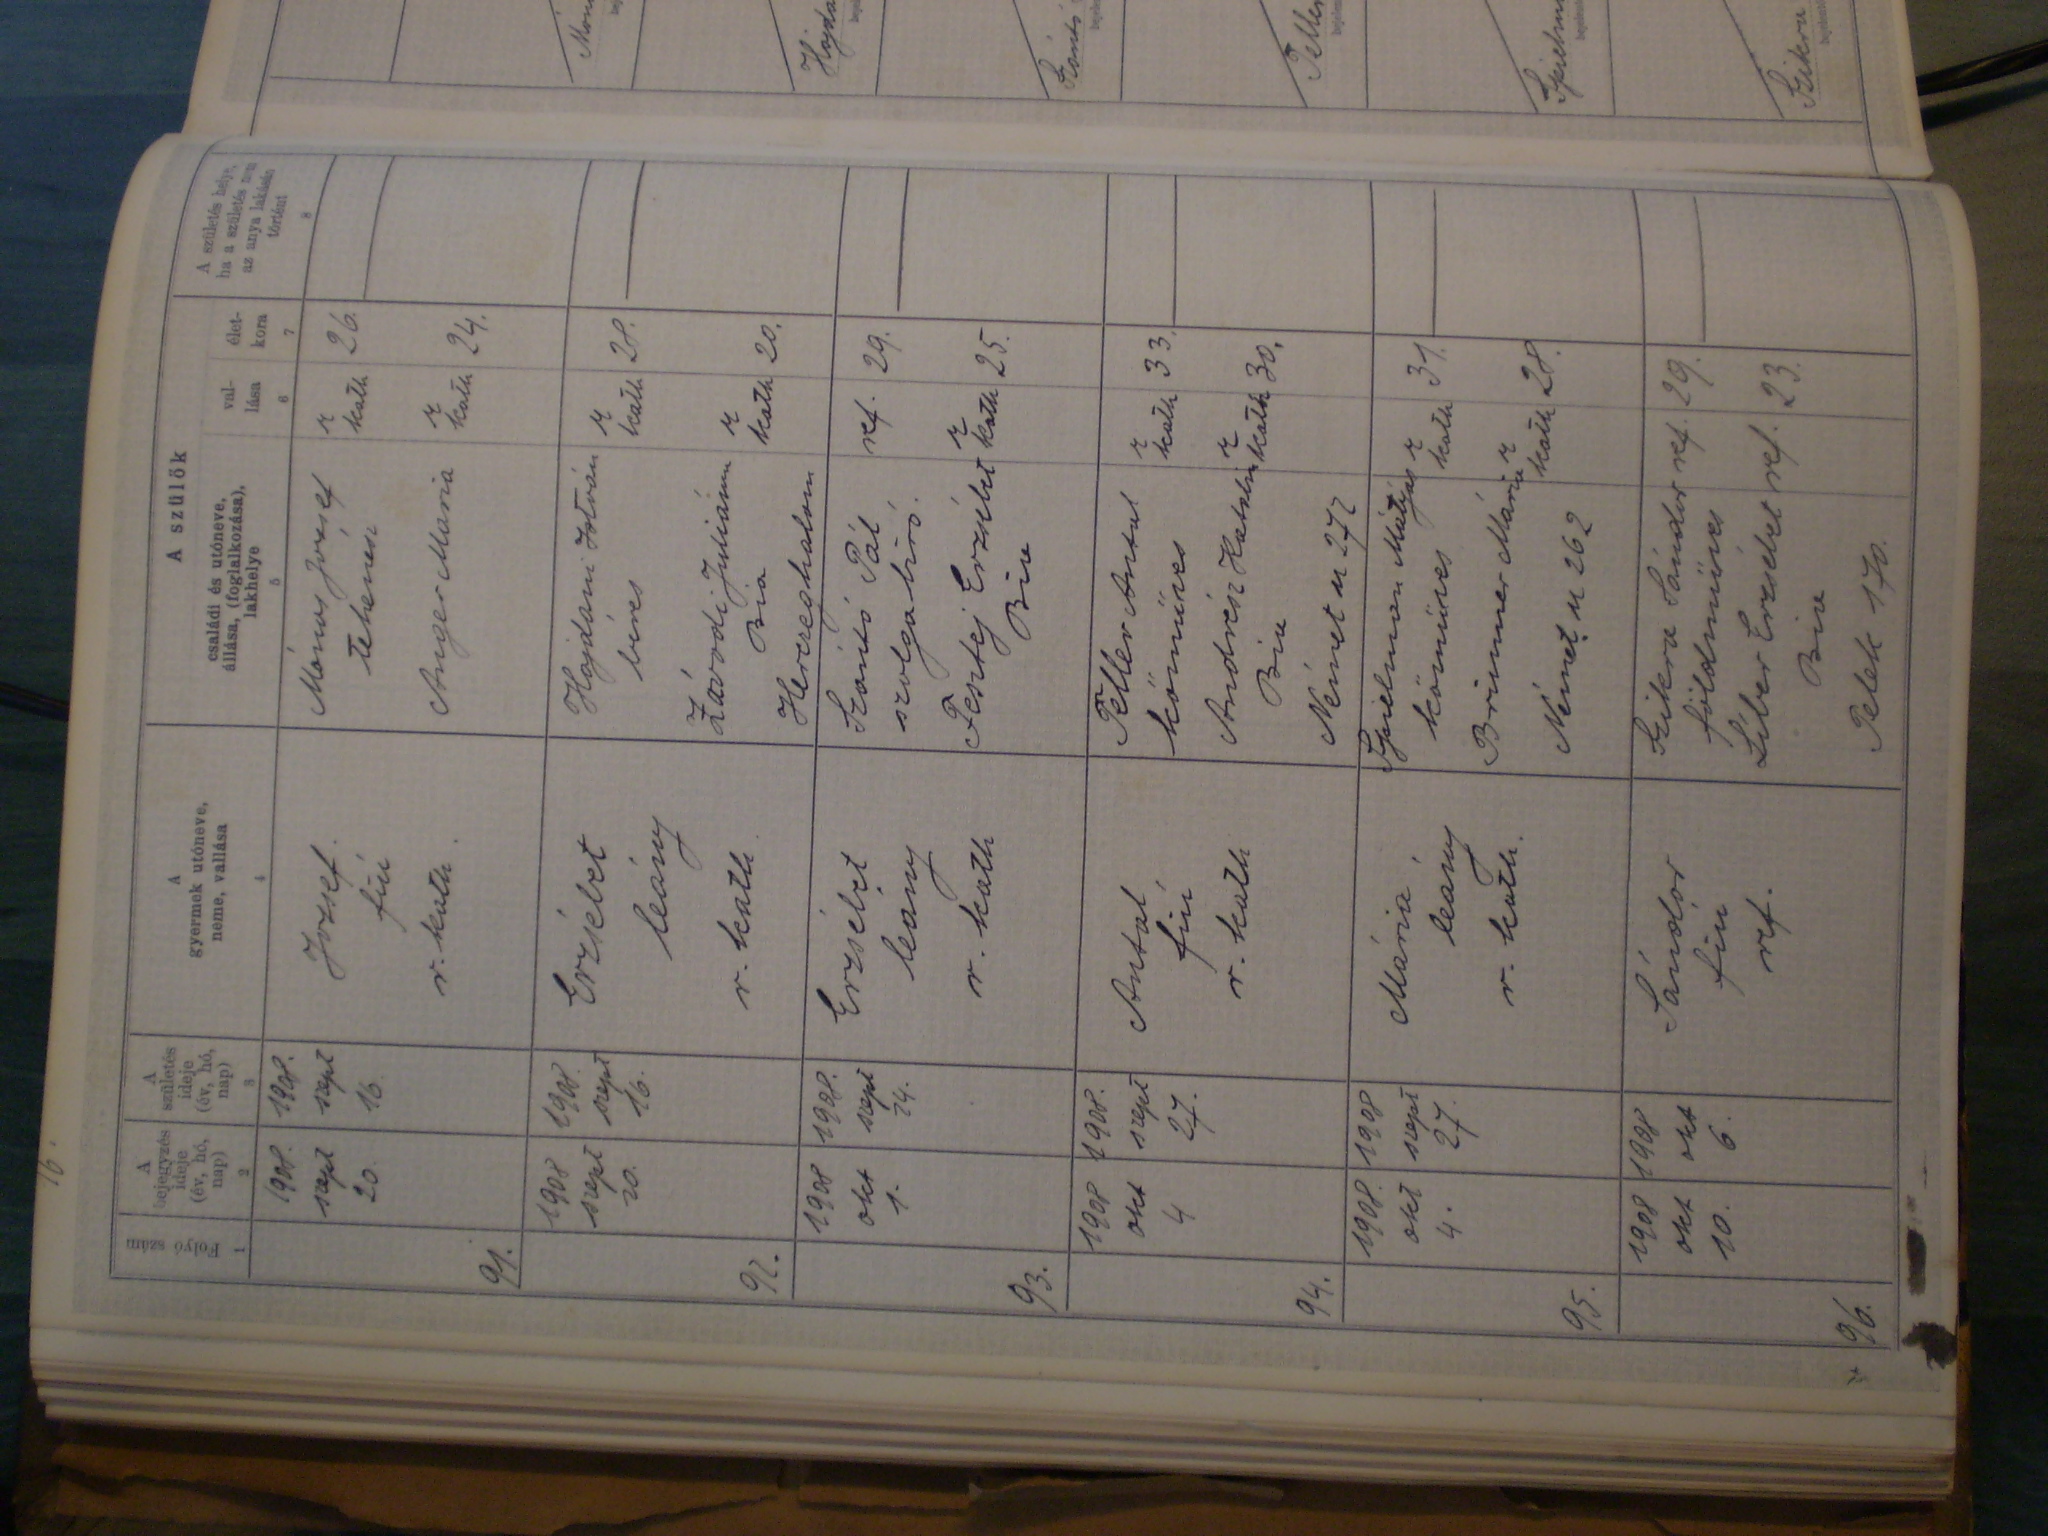 16.
Folyó szám
1
A
bejegyzés
ideje
(év, hó,
nap)
2
A
születés
ideje
(év, hó,
nap)
3
A
gyermek utóneve,
neme, vallása
4
A szülők
családi és utóneve,
állása, (foglalkozása),
lakhelye
5
val-
lása
6
élet-
kora
7
A születés helye,
ha a születés nem
az anya lakásán
történt
8
91.
1908.
szept
20.
1908.
szept
16.
József.
fiú
r. kath.
Mónus József
tehenész
r
kath
26.
Anger Mária
r
kath
24.
92.
1908
szept
20.
1908.
szept
16.
Erzsébet
leány
r. kath.
Hajdani István
béres
r
kath
28.
Závodi Juliánna
Bia
Herceghalom
r
kath
20.
93.
1908
okt
1.
1908.
szept
24.
Erzsébet
leány
r. kath
Szántó Pál
szolgabiró.
ref.
29.
Pesztej Erzsébet
Bia
r
kath
25.
94.
1908
okt
4
1908.
szept
27.
Antal
fiú
r. kath
Peller Antal
kőműves
r
kath
33.
Andrész Katalin
Bia
Német u 272
r
kath
30.
95.
1908.
okt
4.
1908
szept
27.
Mária
leány
r. kath.
Spielman Mátyás
kőműves
r
kath
31.
Brimmer Mária
Német u 262
r
kath
28.
96.
1908
okt
10.
1908
okt
6.
Sándor
fiú
ref.
Szikra Sándor
földműves
ref.
29.
Líber Erzsébet
Bia
Petek 170.
ref.
23.
Hajda
Szántó
Peller
Spielm
Szikra